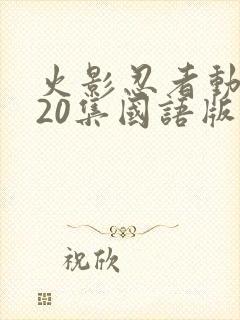 火影忍者動
20集國語版
祝欣